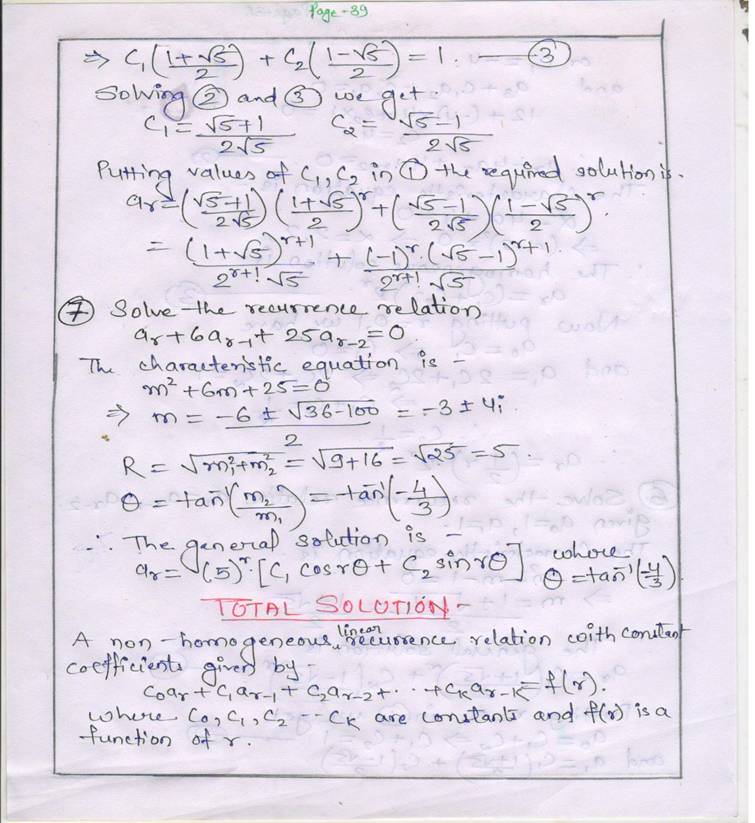 Page-39
⇒ C₁(1+√5/2) + C₂(1-√5/2) = 1. —— ③
Solving ② and ③ we get.
C₁ = √5+1/2√5  C₂ = √5-1/2√5
Putting values of C₁, C₂ in ① the required solution is.
aᵣ = (√5+1/2√5)(1+√5/2)ʳ + (√5-1/2√5)(1-√5/2)ʳ.
= (1+√5)ʳ⁺¹/2ʳ⁺¹·√5 + (-1)ʳ·(√5-1)ʳ⁺¹/2ʳ⁺¹·√5
⑦ Solve the recurrence relation
aᵣ + 6aᵣ₋₁ + 25aᵣ₋₂ = 0
The characteristic equation is :-
m² + 6m + 25 = 0
⇒ m = -6 ± √36-100/2 = -3 ± 4i
R = √m₁²+m₂² = √9+16 = √25 = 5.
θ = tan⁻¹(m₂/m₁) = tan⁻¹(-4/3)
∴ The general solution is -
aᵣ = (5)ʳ·[C₁ cos rθ + C₂ sin rθ] where θ = tan⁻¹(-4/3).
TOTAL SOLUTION -
A non-homogeneous linear recurrence relation with constant
coefficients given by -
C₀aᵣ + C₁aᵣ₋₁ + C₂aᵣ₋₂ + ... + Cₖaᵣ₋ₖ = f(r).
where C₀, C₁, C₂ --- Cₖ are constants and f(r) is a
function of r.